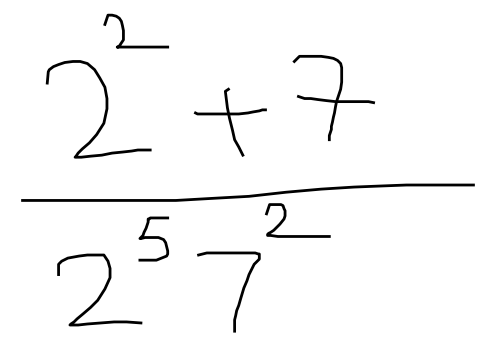 2² + 7
2⁵ 7²